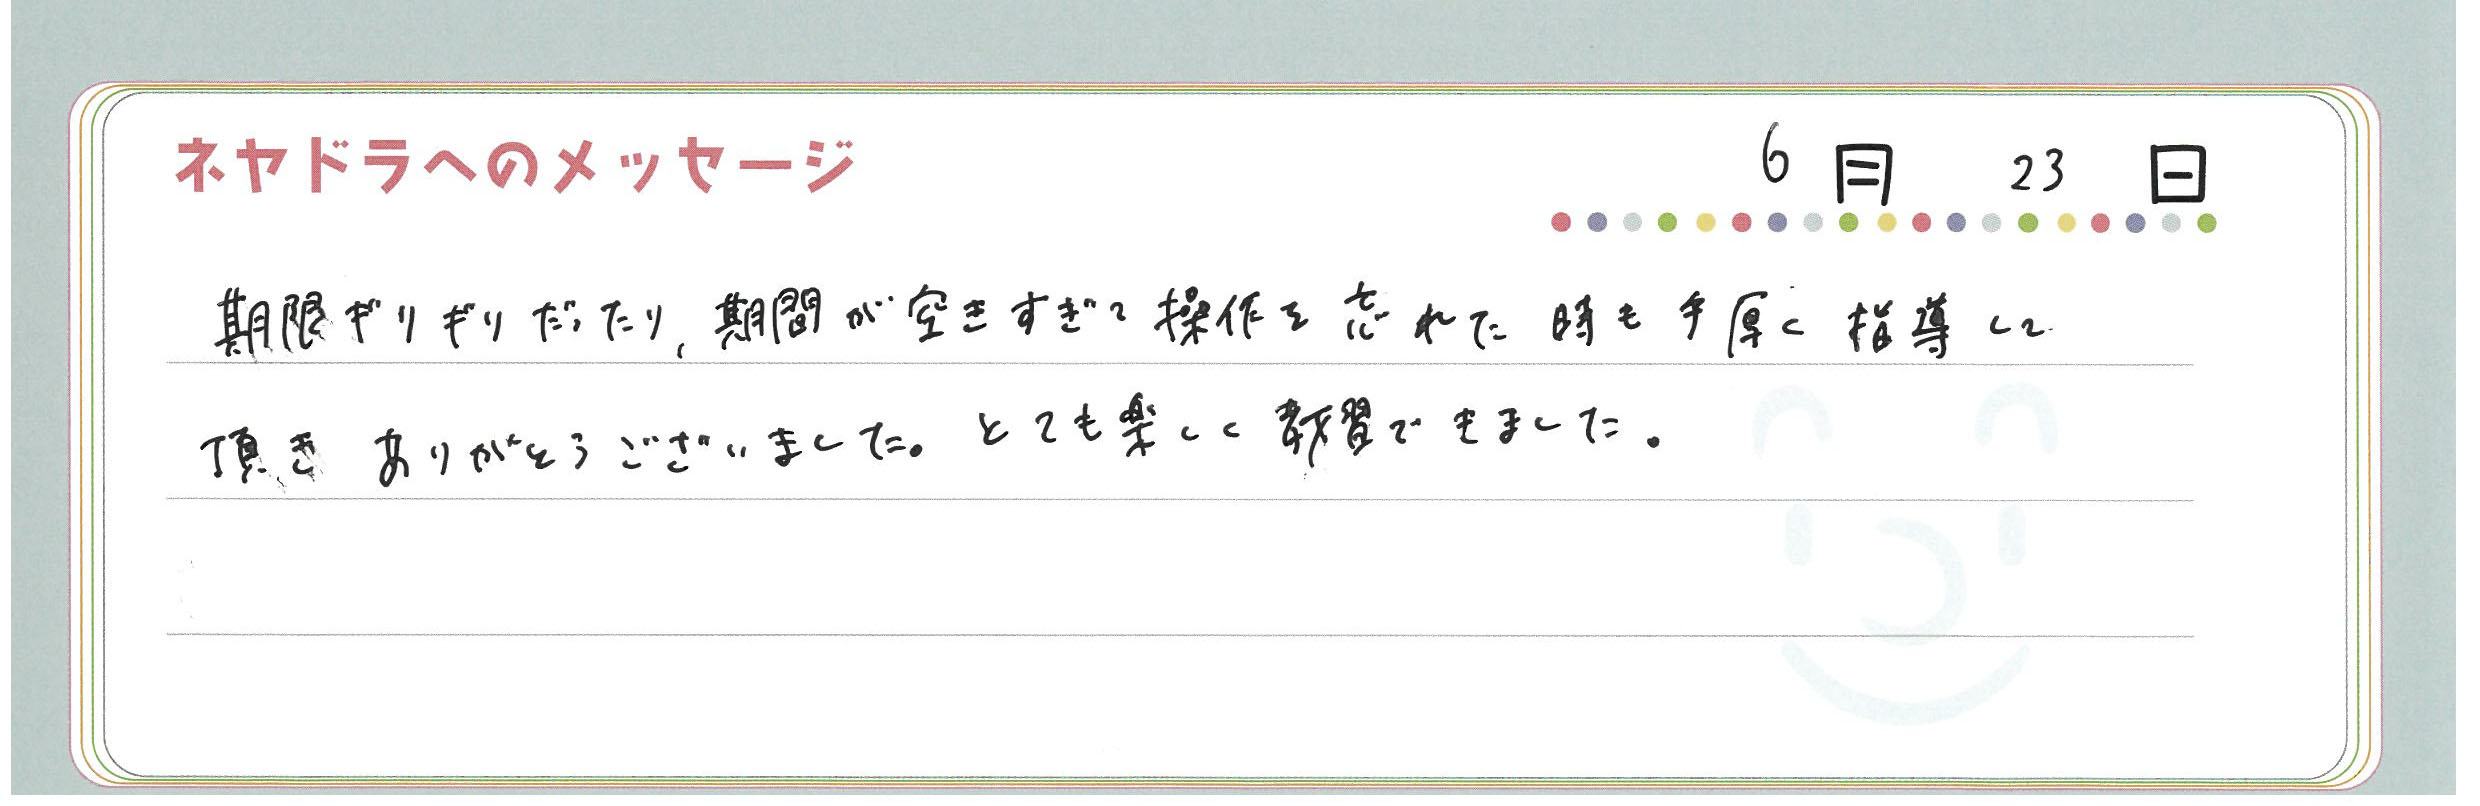 ネヤドラへのメッセージ
6月 23日
期限ギリギリだったり、期間が空きすぎて操作を忘れた時も手厚く指導して
頂きありがとうございました。とても楽しく教習できました。